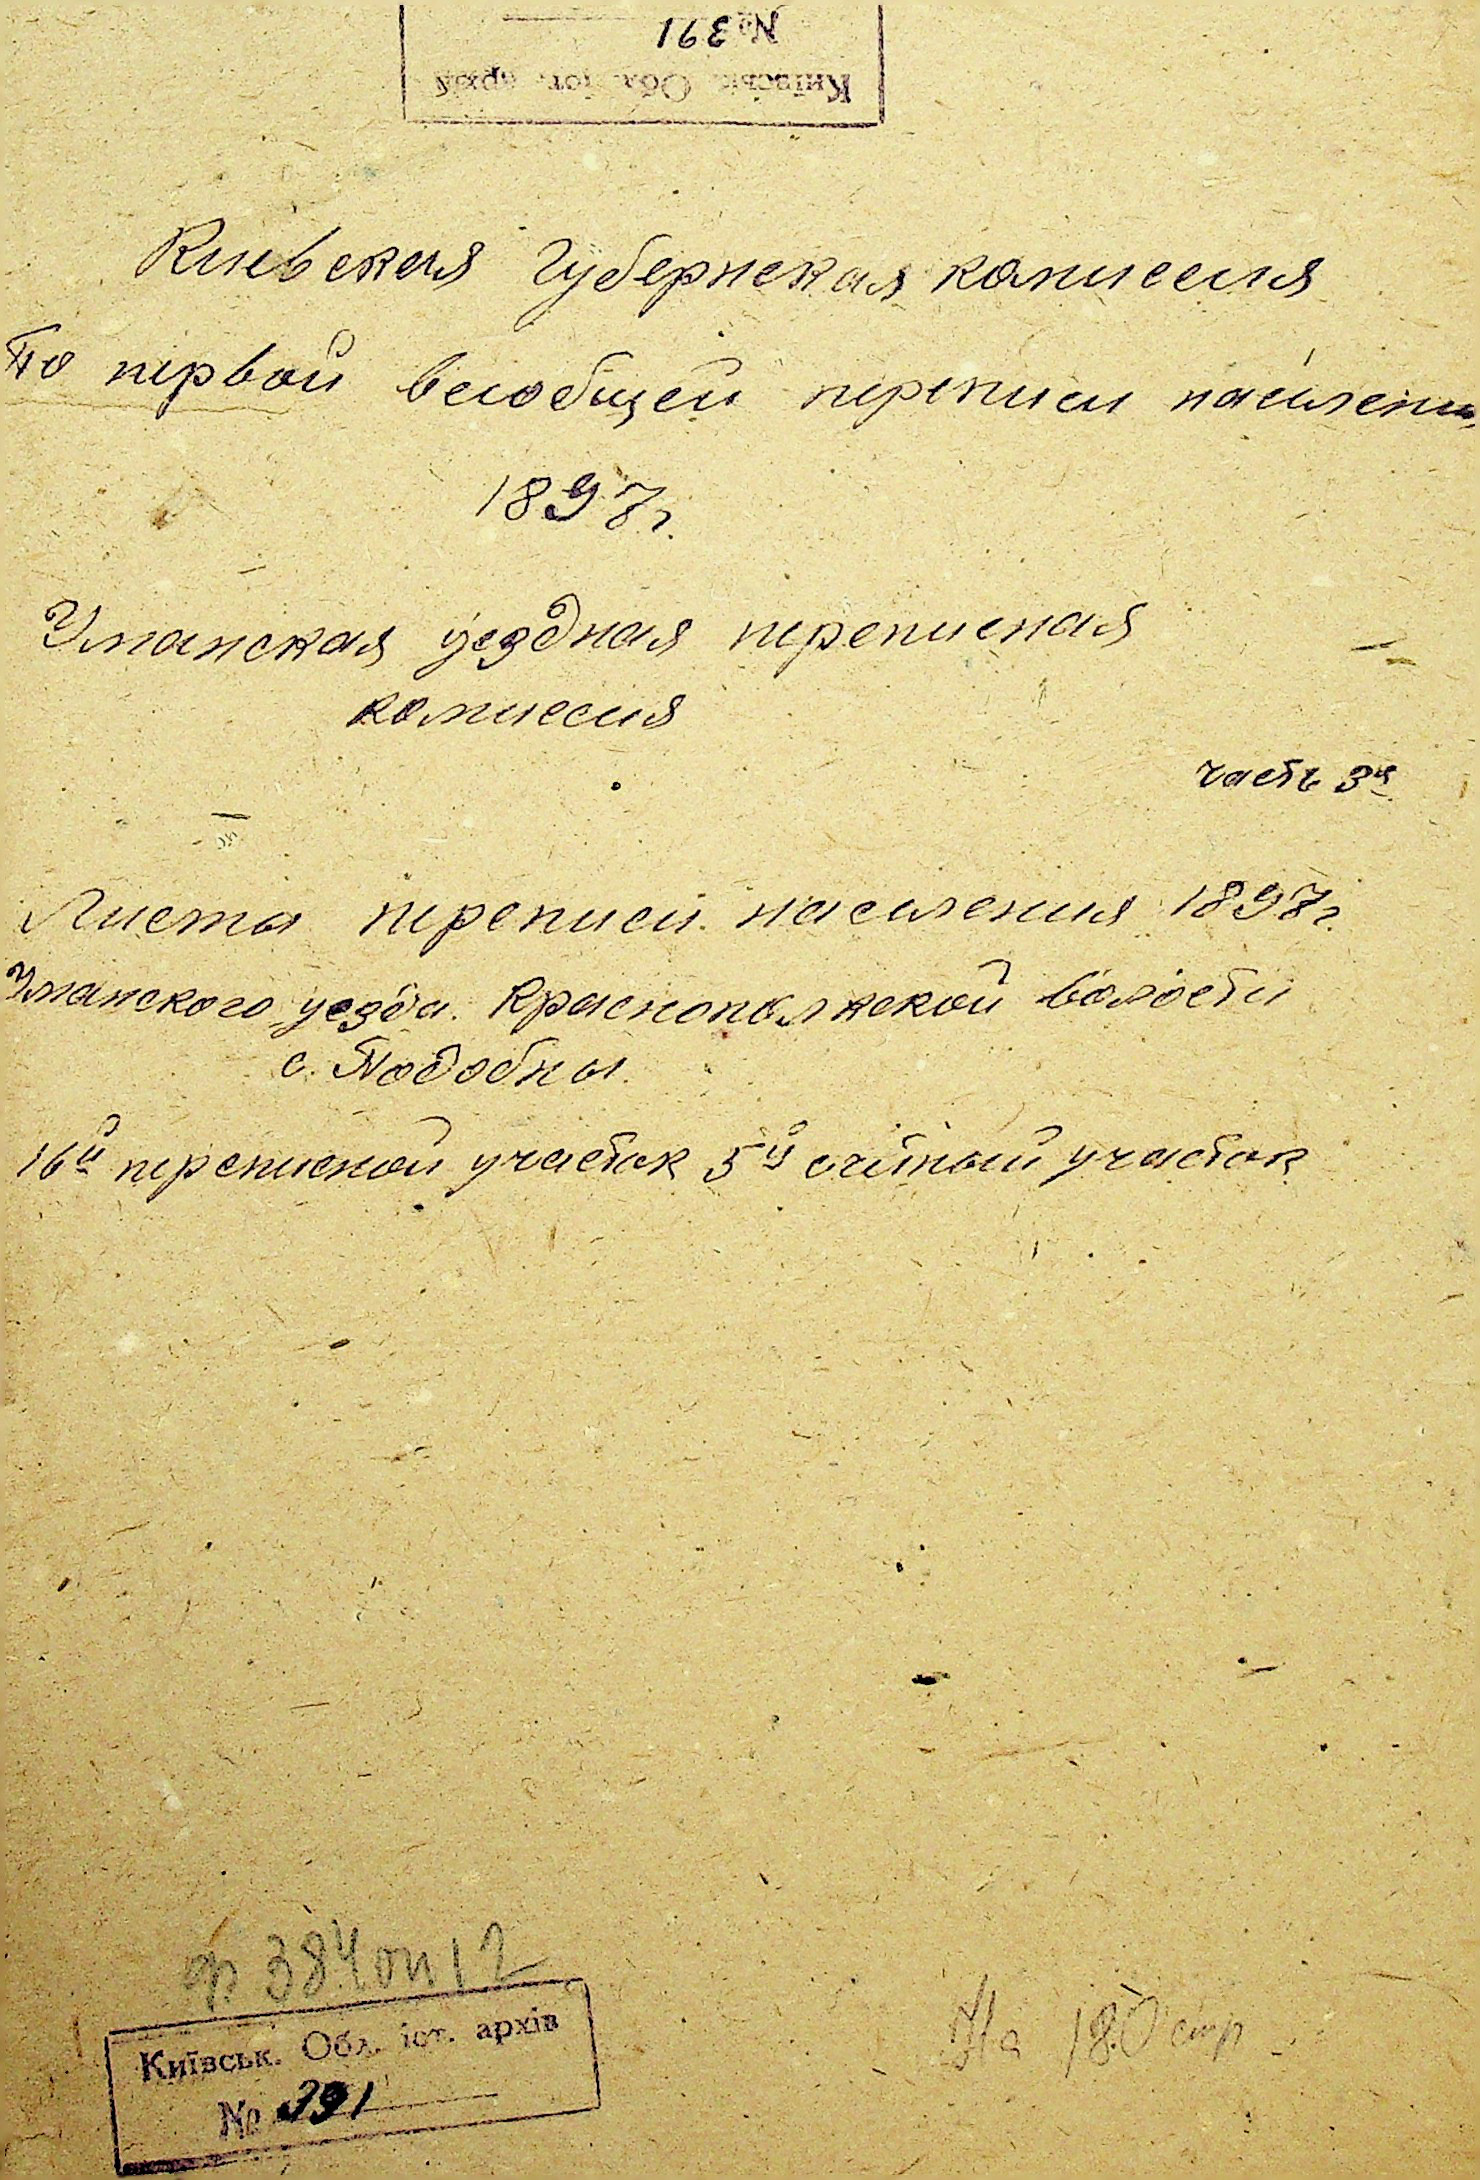 № 391
Київськ. Обл. іст. архів
Киевская Губернская комиссия
По первой всеобщей переписи населения
1897 г.
Уманская уездная переписная
комиссия
часть 3я
Листы переписи населения 1897 г.
Уманского уезда. Краснополжской волости
с. Подобны.
16й переписной участок 5й счётный участок
ф 384 оп 12
Київськ. Обл. іст. архів
№ 391
На 180 стр.